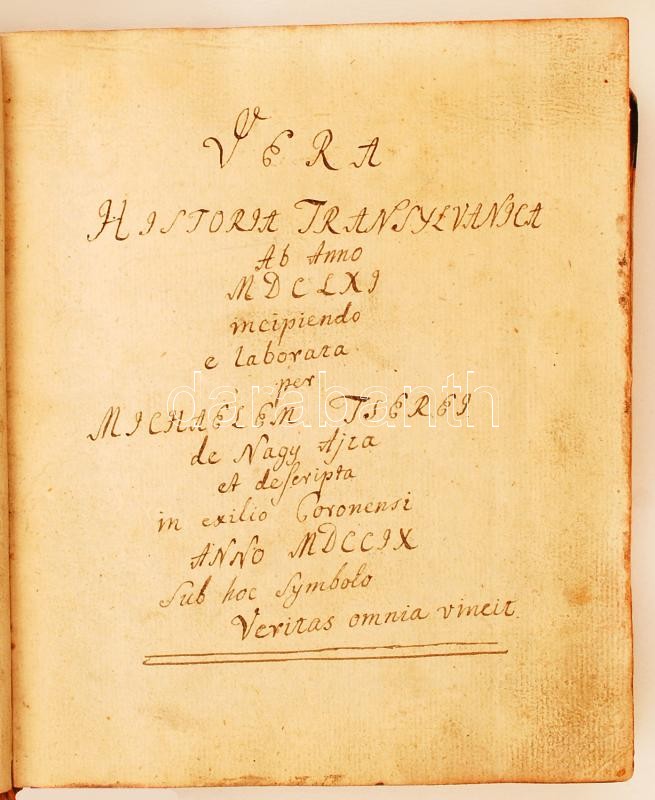 VERA
HISTORIA TRANSYLVANICA
Ab Anno
MDCLXI
incipiendo
e laborata
per
darabanth
MICHAELEM TSEREI
de Nagy Ajta
et descripta
in exilio Coronensi
ANNO MDCCIX
Sub hoc Symbolo
Veritas omnia vincit